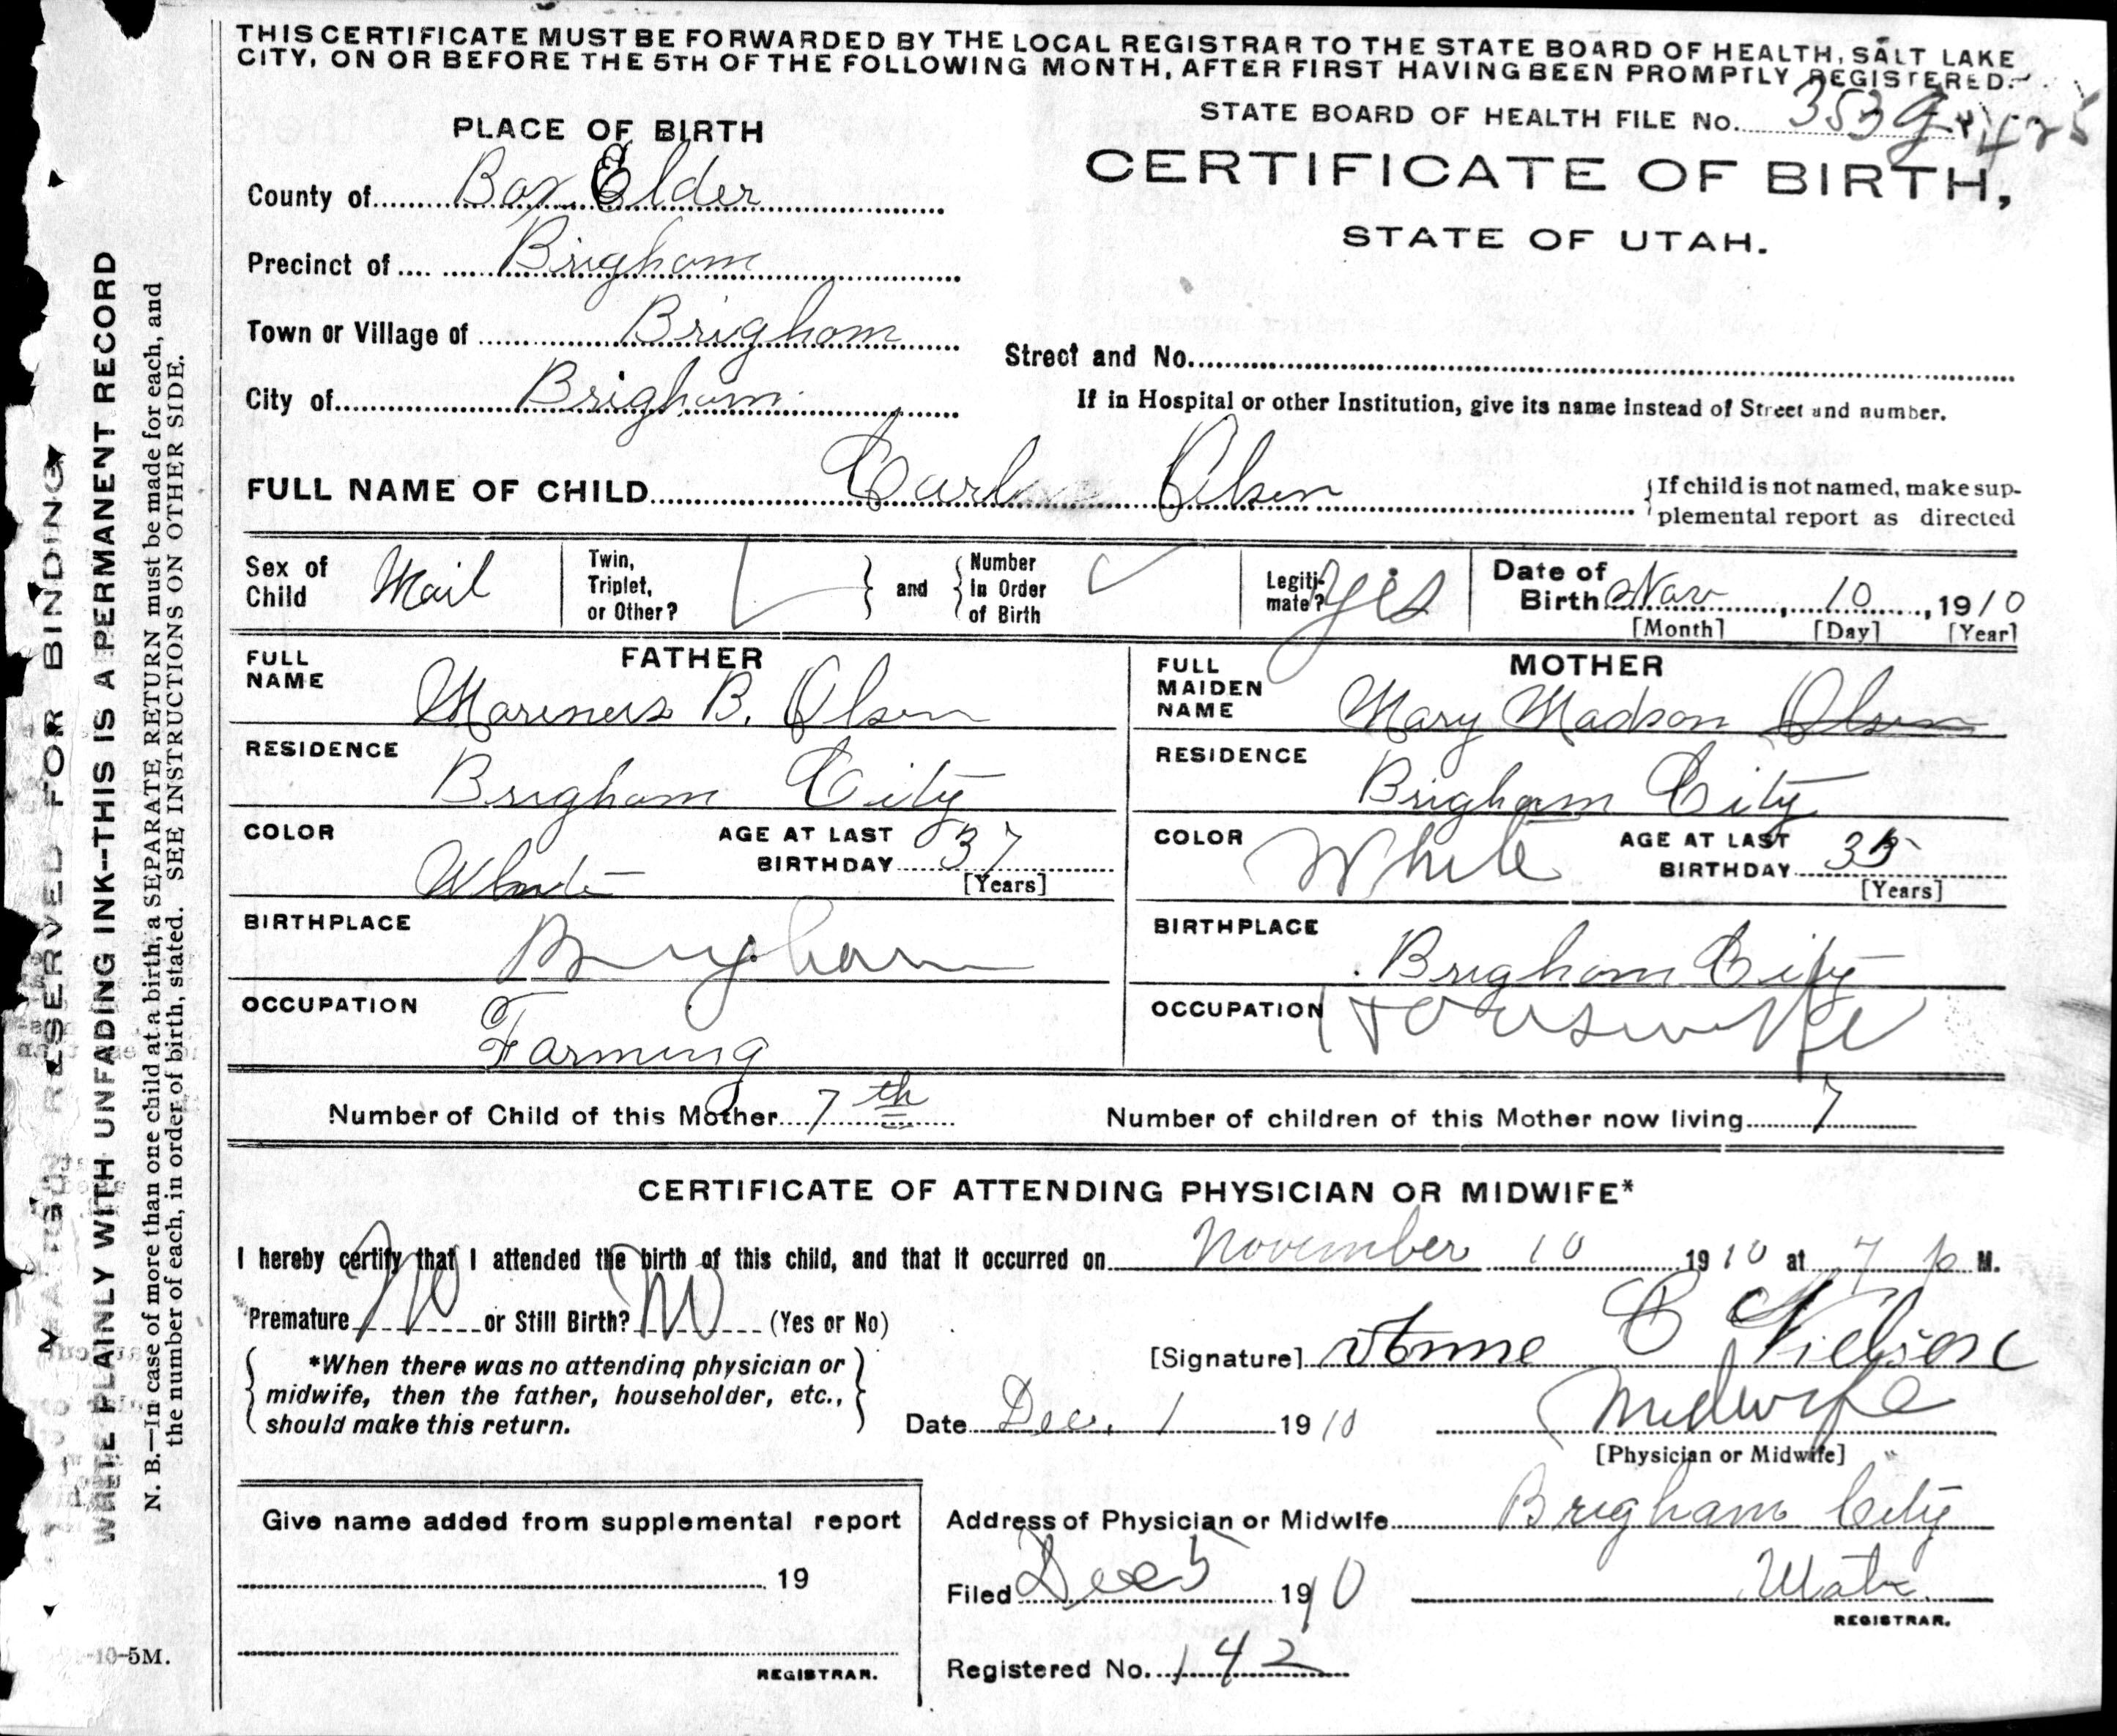 THIS CERTIFICATE MUST BE FORWARDED BY THE LOCAL REGISTRAR TO THE STATE BOARD OF HEALTH, SALT LAKE
CITY, ON OR BEFORE THE 5TH OF THE FOLLOWING MONTH, AFTER FIRST HAVING BEEN PROMPTLY REGISTERED.
STATE BOARD OF HEALTH FILE No. 353
PLACE OF BIRTH
CERTIFICATE OF BIRTH,
STATE OF UTAH.
County of Box Elder
Precinct of Brigham
Town or Village of Brigham
Street and No.
City of Brigham
If in Hospital or other Institution, give its name instead of Street and number.
FULL NAME OF CHILD Carl Olsen
{If child is not named, make sup-
plemental report as directed
Sex of Child Mail
Twin, Triplet, or Other? } and { Number in Order of Birth
Legiti-mate? yes
Date of Birth Nov 10, 1910
[Month] [Day] [Year]
FATHER
FULL NAME Mariners B. Olsen
RESIDENCE Brigham City
COLOR White
AGE AT LAST BIRTHDAY 37
[Years]
BIRTHPLACE Brigham
OCCUPATION Farming
MOTHER
FULL MAIDEN NAME Mary Madson Olsen
RESIDENCE Brigham City
COLOR White
AGE AT LAST BIRTHDAY 35
[Years]
BIRTHPLACE Brigham City
OCCUPATION Houswife
Number of Child of this Mother 7th
Number of children of this Mother now living 7
CERTIFICATE OF ATTENDING PHYSICIAN OR MIDWIFE*
I hereby certify that I attended the birth of this child, and that it occurred on November 10 1910 at 7 p M.
Premature No or Still Birth? No (Yes or No)
*When there was no attending physician or
midwife, then the father, householder, etc.,
should make this return.
[Signature] Anne C Nielsen
Date Dec. 1 1910
Midwife
[Physician or Midwife]
Give name added from supplemental report
19
REGISTRAR.
Address of Physician or Midwife Brigham City
Utah
Filed Dec 5 1910
REGISTRAR.
Registered No. 142
RESERVED FOR BINDING
WRITE PLAINLY WITH UNFADING INK--THIS IS A PERMANENT RECORD
N. B.—In case of more than one child at a birth, a SEPARATE RETURN must be made for each, and
the number of each, in order of birth, stated. SEE INSTRUCTIONS ON OTHER SIDE.
-10-5M.